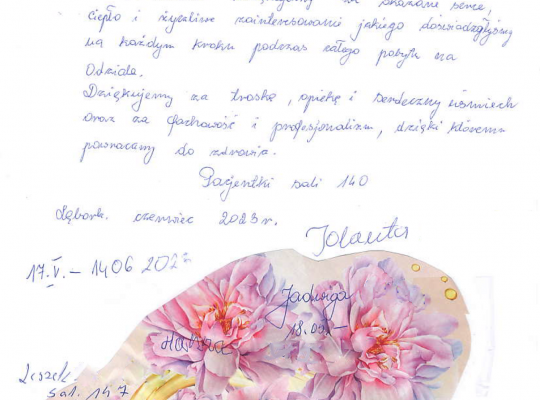 za okazane serce,
ciepło i życzliwe zainteresowanie jakiego doświadczyłyśmy
na każdym kroku podczas całego pobytu na
Oddziale.
Dziękujemy za troskę, opiekę i serdeczny uśmiech
oraz za fachowość i profesjonalizm, dzięki któremu
powracamy do zdrowia.
Pacjentki sali 140
Lębork. czerwiec 2023 r.
Jolanta
17.V.-1406 202
Jadwiga
18.05-
Hanna
Leszek
sal. 147